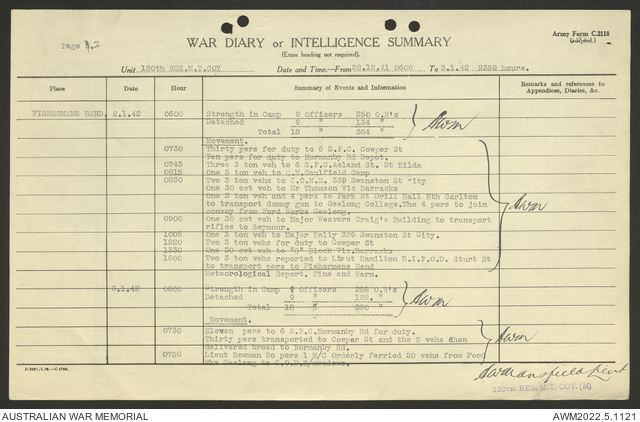 Page 2
WAR DIARY or INTELLIGENCE SUMMARY
(Erase heading not required).
Army Form C.2118
(adapted.)
Unit 120th RES.M.T.COY Date and Time.—From 28.12.41 0600 To 3.1.42 2359 hours.
Place Date Hour Summary of Events and Information Remarks and references to Appendices, Diaries, &c.
FISHERMENS BEND. 2.1.42 0600 Strength in Camp 9 Officers 250 O.R's
Detached 9 " 134 "
Total 18 " 384 "
Movement.
0730 Thirty pers for duty to 6 S.P.C. Cowper St
Ten pers for duty to Normanby Rd Depot.
0745 Three 3 ton veh to 6 S.P.C. Acland St. St Kilda
0815 One 3 ton veh to Q.M. Caulfield Camp
0830 Two 3 ton vehs to C.O.M.E. 339 Swanston St City
One 30 cwt veh to Mr Thomson Vic Barracks
One 3 ton veh and 4 pers to Park St Drill Hall Nth Carlton
to transport dummy gun to Geelong College. The 4 pers to join
convoy from Ford Works Geelong.
0900 One 30 cwt veh to Major Weavers Craig's Building to transport
rifles to Seymour.
1005 One 3 ton veh to Major Kelly 339 Swanston St City.
1220 Two 3 ton vehs for duty to Cowper St
1330 One 30 cwt veh to "G" Block Vic. Barracks
1600 Two 3 ton vehs reported to Lieut Hamilton B.I.P.O.D. Sturt St
to transport pers to Fishermens Bend
Meteorological Report. Fine and Warm.
3.1.42 0600 Strength in Camp 9 Officers 258 O.R's
Detached 9 " 122. "
Total 18 " 380 "
Movement.
0730 Eleven pers to 6 S.P.C. Normanby Rd for duty.
Thirty pers transported to Cowper St and the 2 vehs then
delivered bread to Normanby Rd.
0750 Lieut Bowman 20 pers 1 M/C Orderly ferried 20 vehs from Ford
Geelong to
Mansfield Lieut
120TH. RES. M.T. COY. (M)
AUSTRALIAN WAR MEMORIAL
AWM2022.5.1121